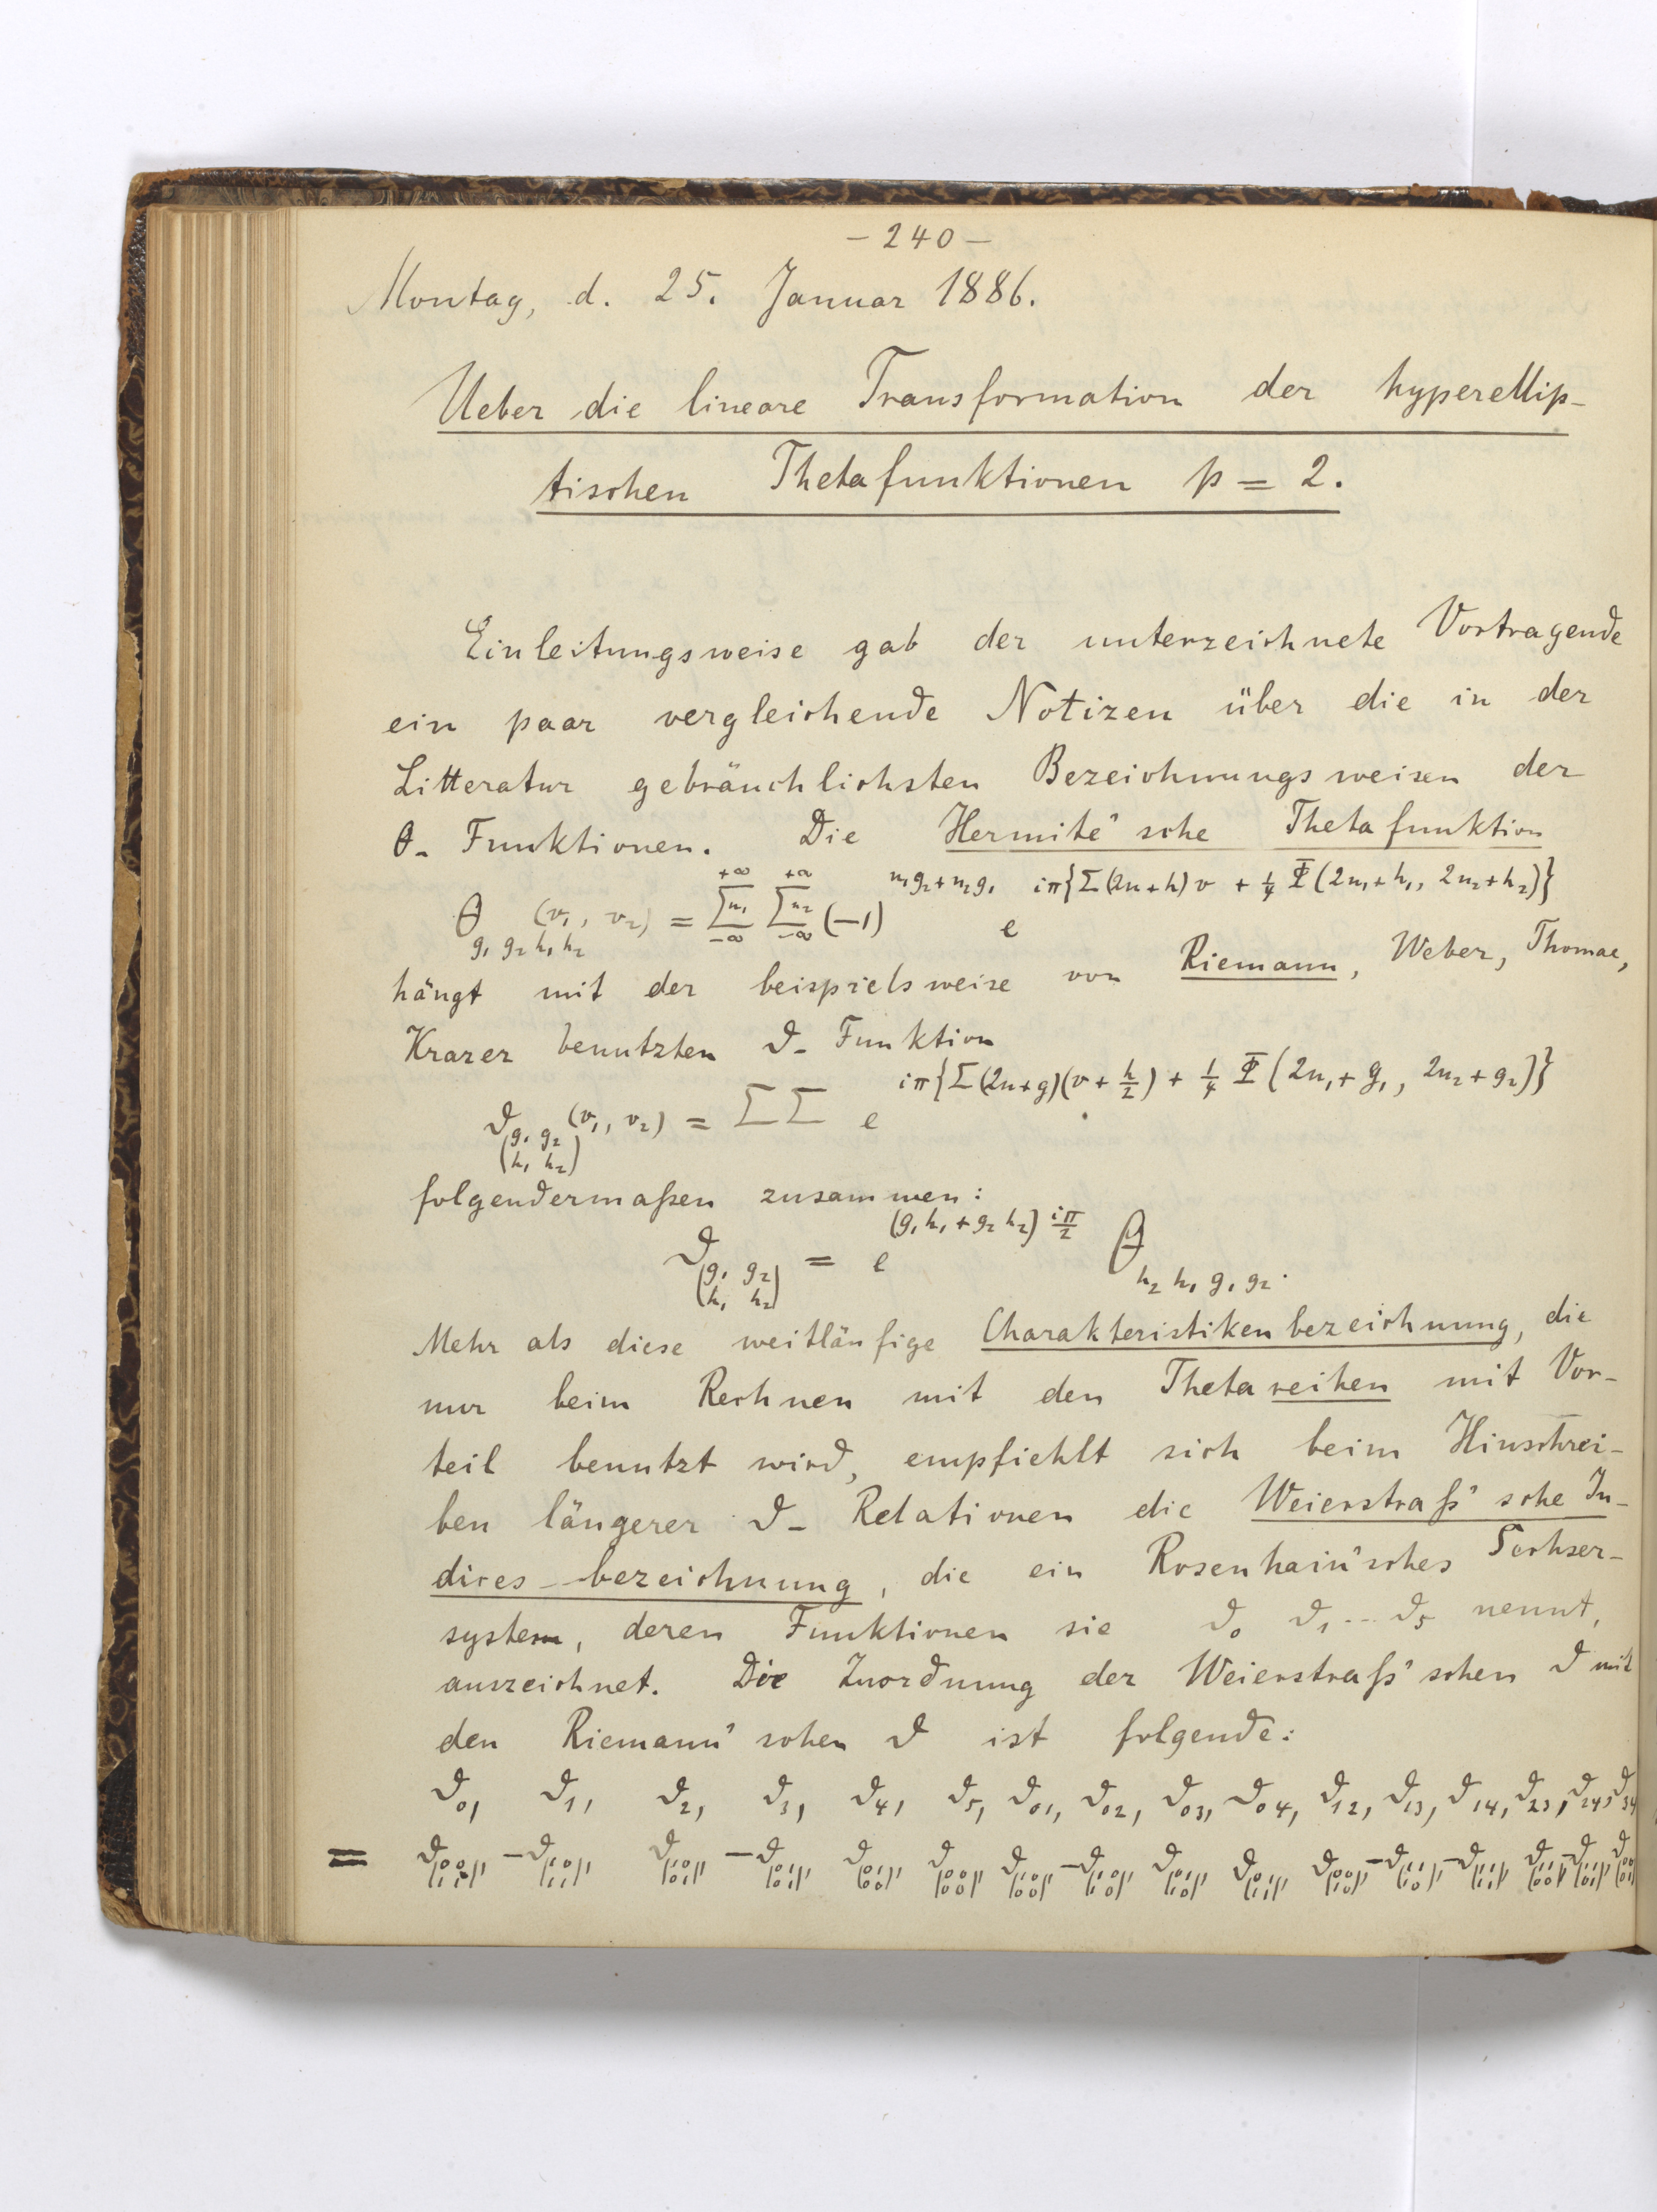 – 240 –
Montag, d. 25. Januar 1886.
Ueber die lineare Transformation der hyperellip-
tischen Thetafunktionen p = 2.
Einleitungsweise gab der unterzeichnete Vortragende
ein paar vergleichende Notizen über die in der
Litteratur gebräuchlichsten Bezeichnungsweisen der
θ- Funktionen. Die Hermite'sche Thetafunktion
θ_{g₁ g₂ h₁ h₂} (v₁, v₂) = Σ^{+∞}_{-∞} n₁ Σ^{+∞}_{-∞} n₂ (-1)^{n₁g₂+n₂g₁} e^{iπ{Σ(2n+h)v + ¼ Φ(2n₁+h₁, 2n₂+h₂)}}
hängt mit der beispielsweise von Riemann, Weber, Thomae,
Krazer benutzten ϑ- Funktion
ϑ_{(g₁ g₂ / h₁ h₂)} (v₁, v₂) = ΣΣ e^{iπ{Σ(2n+g)(v+h/2) + ¼ Φ(2n₁+g₁, 2n₂+g₂)}}
folgendermaßen zusammen:
ϑ_{(g₁ g₂ / h₁ h₂)} = e^{(g₁h₁+g₂h₂) iπ/2} θ_{h₂ h₁ g₁ g₂}.
Mehr als diese weitläufige Charakteristikenbezeichnung, die
nur beim Rechnen mit den Thetareihen mit Vor-
teil benutzt wird, empfiehlt sich beim Hinschrei-
ben längerer ϑ- Relationen die Weierstraß'sche In-
dices-bezeichnung, die ein Rosenhain'sches Sechser-
system, deren Funktionen sie ϑ₀ ϑ₁ ... ϑ₅ nennt,
auszeichnet. Die Zuordnung der Weierstraß'schen ϑ mit
den Riemann'schen ϑ ist folgende:
ϑ₀, ϑ₁, ϑ₂, ϑ₃, ϑ₄, ϑ₅, ϑ₀₁, ϑ₀₂, ϑ₀₃, ϑ₀₄, ϑ₁₂, ϑ₁₃, ϑ₁₄, ϑ₂₃, ϑ₂₄, ϑ₃₄
=